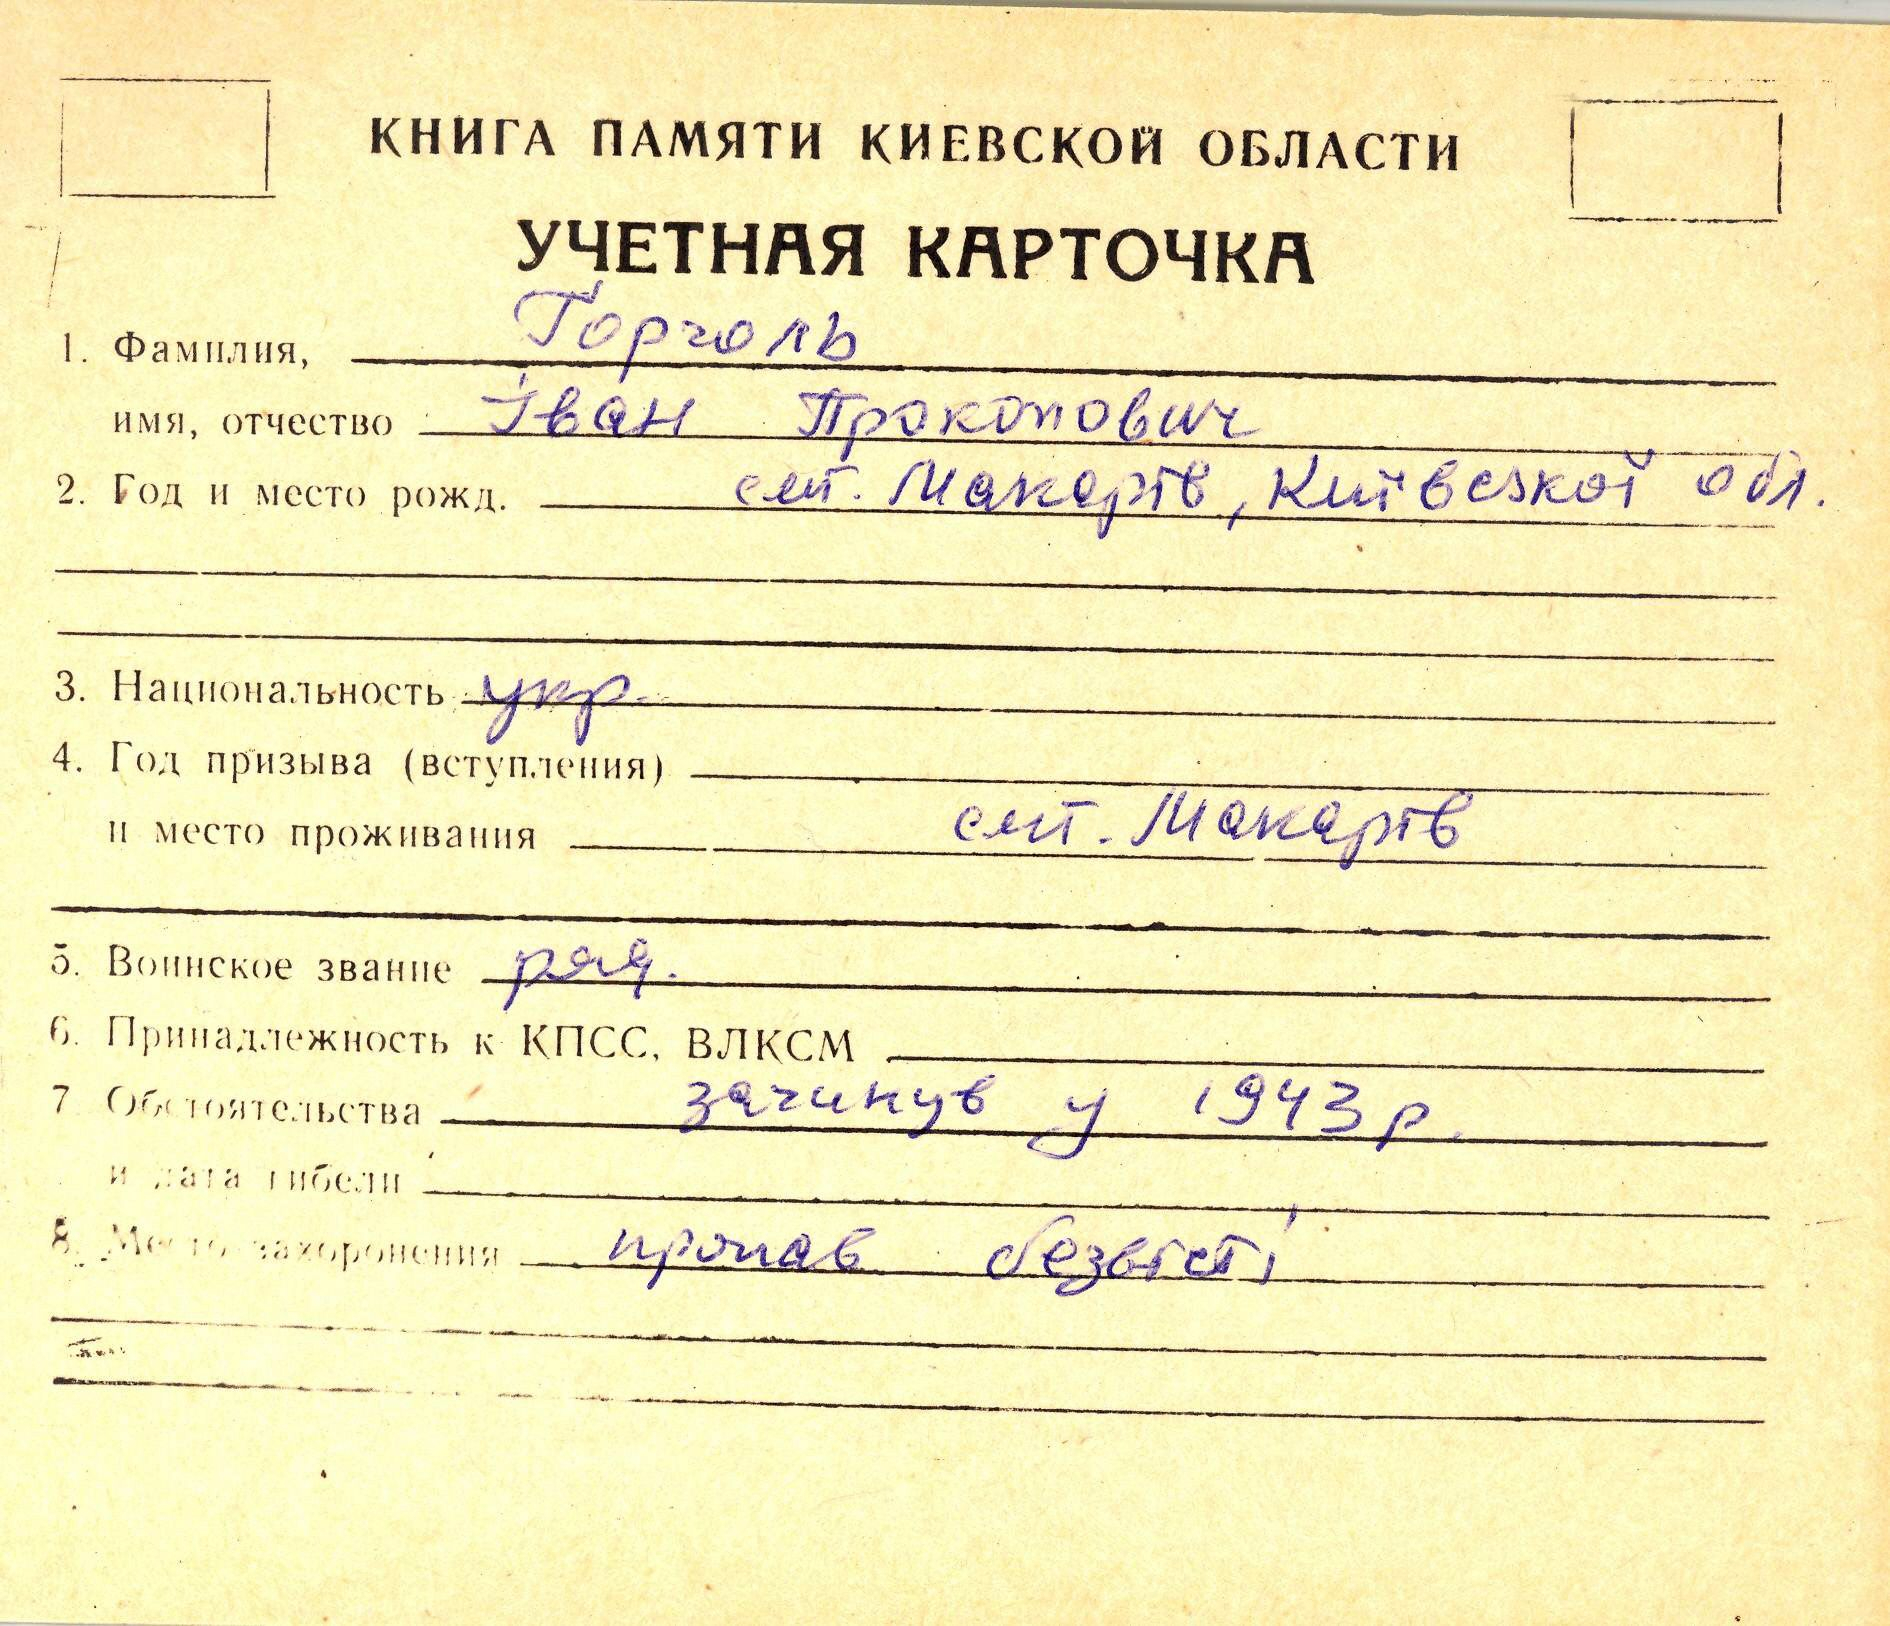 КНИГА ПАМЯТИ КИЕВСКОЙ ОБЛАСТИ
УЧЕТНАЯ КАРТОЧКА
1. Фамилия, Горголь
имя, отчество Іван Прокопович
2. Год и место рожд. смт. Макарів, Київської обл.
3. Национальность укр.
4. Год призыва (вступления)
и место проживания смт. Макарів
5. Воинское звание ряд.
6. Принадлежность к КПСС, ВЛКСМ
7 Обстоятельства загинув у 1943 р.
и дата гибели
8. Место захоронения пропав безвісті